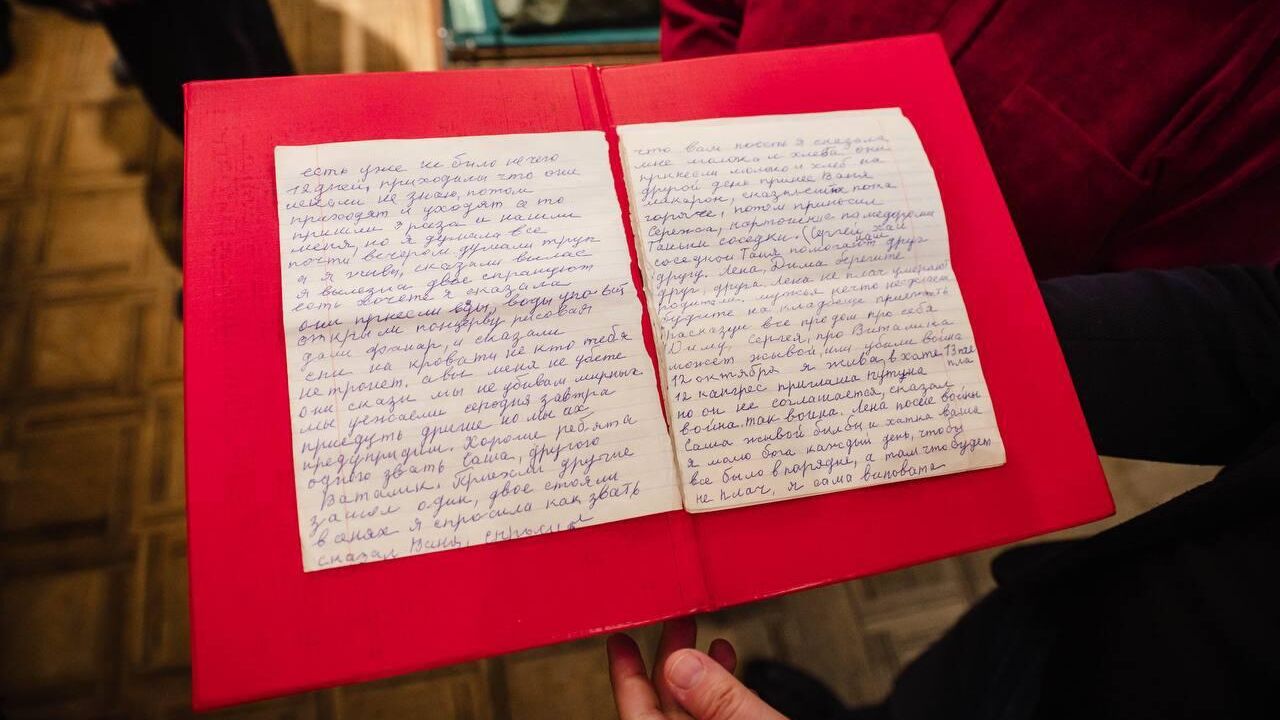 есть уже не було нечего
12 дней, приходили что они
искали не знаю, потом
приходят и уходят а то
пришли 3 раза и нашли
меня, но я думала все
почти вечером думали труп
а я жива, сказали вилас
я вылезла двое спрашуют
есть хочете я сказала
они принесли еды, воды
открыли рисовая
дали фанар, и сказали
спи на кровати не кто тебя
не тронет. а вы меня не убьете
они сказали мы не убивам мирных
мы уежаем сегодня завтра
приедут другие но мы их
предупридим. Хорошие ребята
одного звать Саша, другого
Виталик. Приехали другие
зашел один, двое стояли
в окнях я спросила как звать
сказал Ваня,
что вам поесть я сказала
мне молока и хлеба они
принесли молоко и хлеб на
другой день принес Ваня
макарон, пока
горяче, потом приносил
Сережа, картошние помедорами
Таньки соседки. (Сергей хай
соседкой Таня хай помогают друг
другу. Лена, Дима берегите
друг, друга. Лена не плач умерают
родители. мужья нечто не
будите на кладбище приежать
расказуй все про дом про себя
Диму, Сергея, про Виталика
может живой, или убили война
12 октября я жива, в хате 13 тое
12 кангрес приглаша путуна пла
но он не соглашается, сказал
война. так война. Лена после войны
Саша живой былбы и хатка ваша
я молю бога каждый день, чтобы
все было в парядке, а там что будет
не плач, я сама виновата